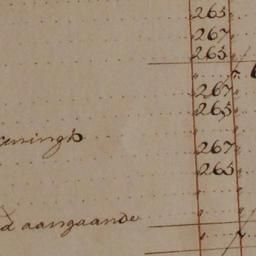 265
267
265
267
265
267
265
d aangaande